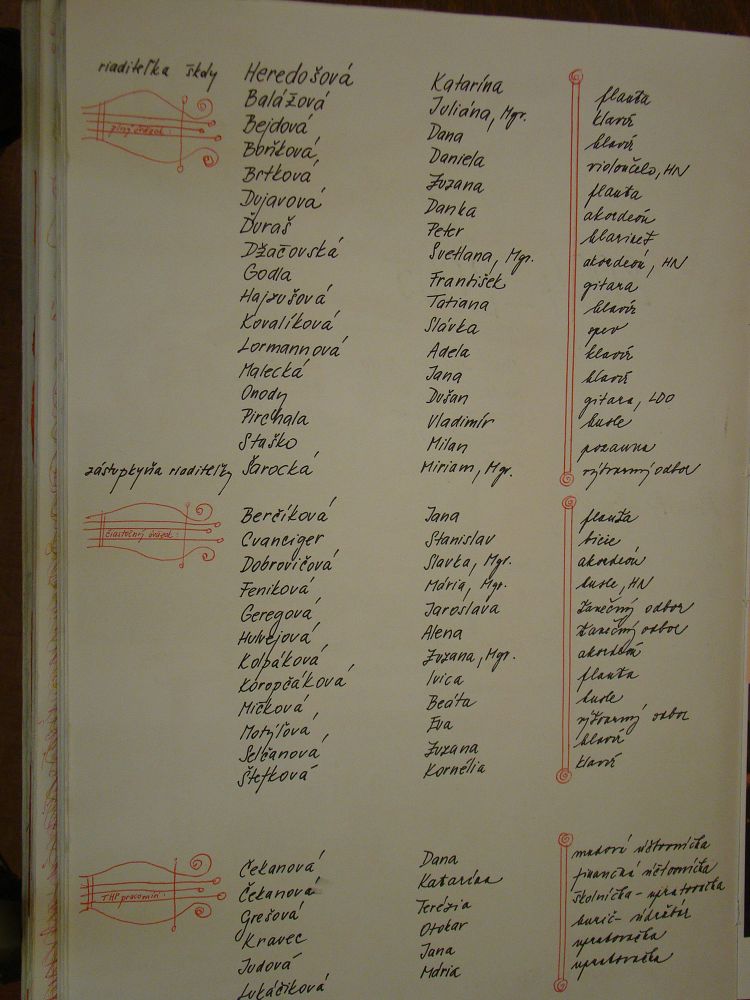 riaditeľka školy Heredošová Katarína flauta
plný úväzok: Balážová Juliána, Mgr. klavír
Bejdová Dana klavír
Daniela violončelo, HN
Brtková Zuzana flauta
Dujavová Danka akordeón
Ďuraš Peter klarinet
Džačovská Svetlana, Mgr. akordeón, HN
Godla František gitara
Hajzušová Tatiana klavír
Kovalíková Slávka spev
Lormannová Adela klavír
Malecká Jana klavír
Onody Dušan gitara, LDO
Pirchala Vladimír husle
Staško Milan pozauna
zástupkyňa riaditeľky Šarocká Miriam, Mgr. výtvarný odbor
čiastočný úväzok: Berčíková Jana flauta
Cvanciger Stanislav bicie
Dobrovičová Slavka, Mgr. akordeón
Feníková Mária, Mgr. husle, HN
Geregová Jaroslava tanečný odbor
Hulvejová Alena tanečný odbor
Kolpáková Zuzana, Mgr. akordeón
Koropčáková Ivica flauta
Mičková Beáta husle
Motýľová Eva výtvarný odbor
Seľčanová Zuzana klavír
Štefková Kornélia klavír
THP pracovníci: Čekanová Dana mzdová účtovníčka
Čekanová Katarína finančná účtovníčka
Grešová Terézia školníčka - upratovačka
Kravec Otokar kurič - údržbár
Judová Jana upratovačka
Lukáčiková Mária upratovačka